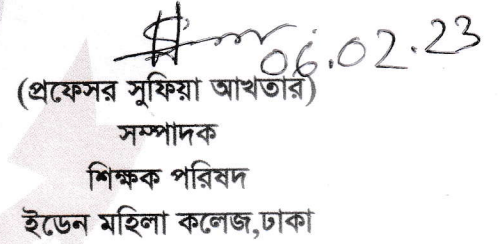 06.02.23
(প্রফেসর সুফিয়া আখতার)
সম্পাদক
শিক্ষক পরিষদ
ইডেন মহিলা কলেজ,ঢাকা